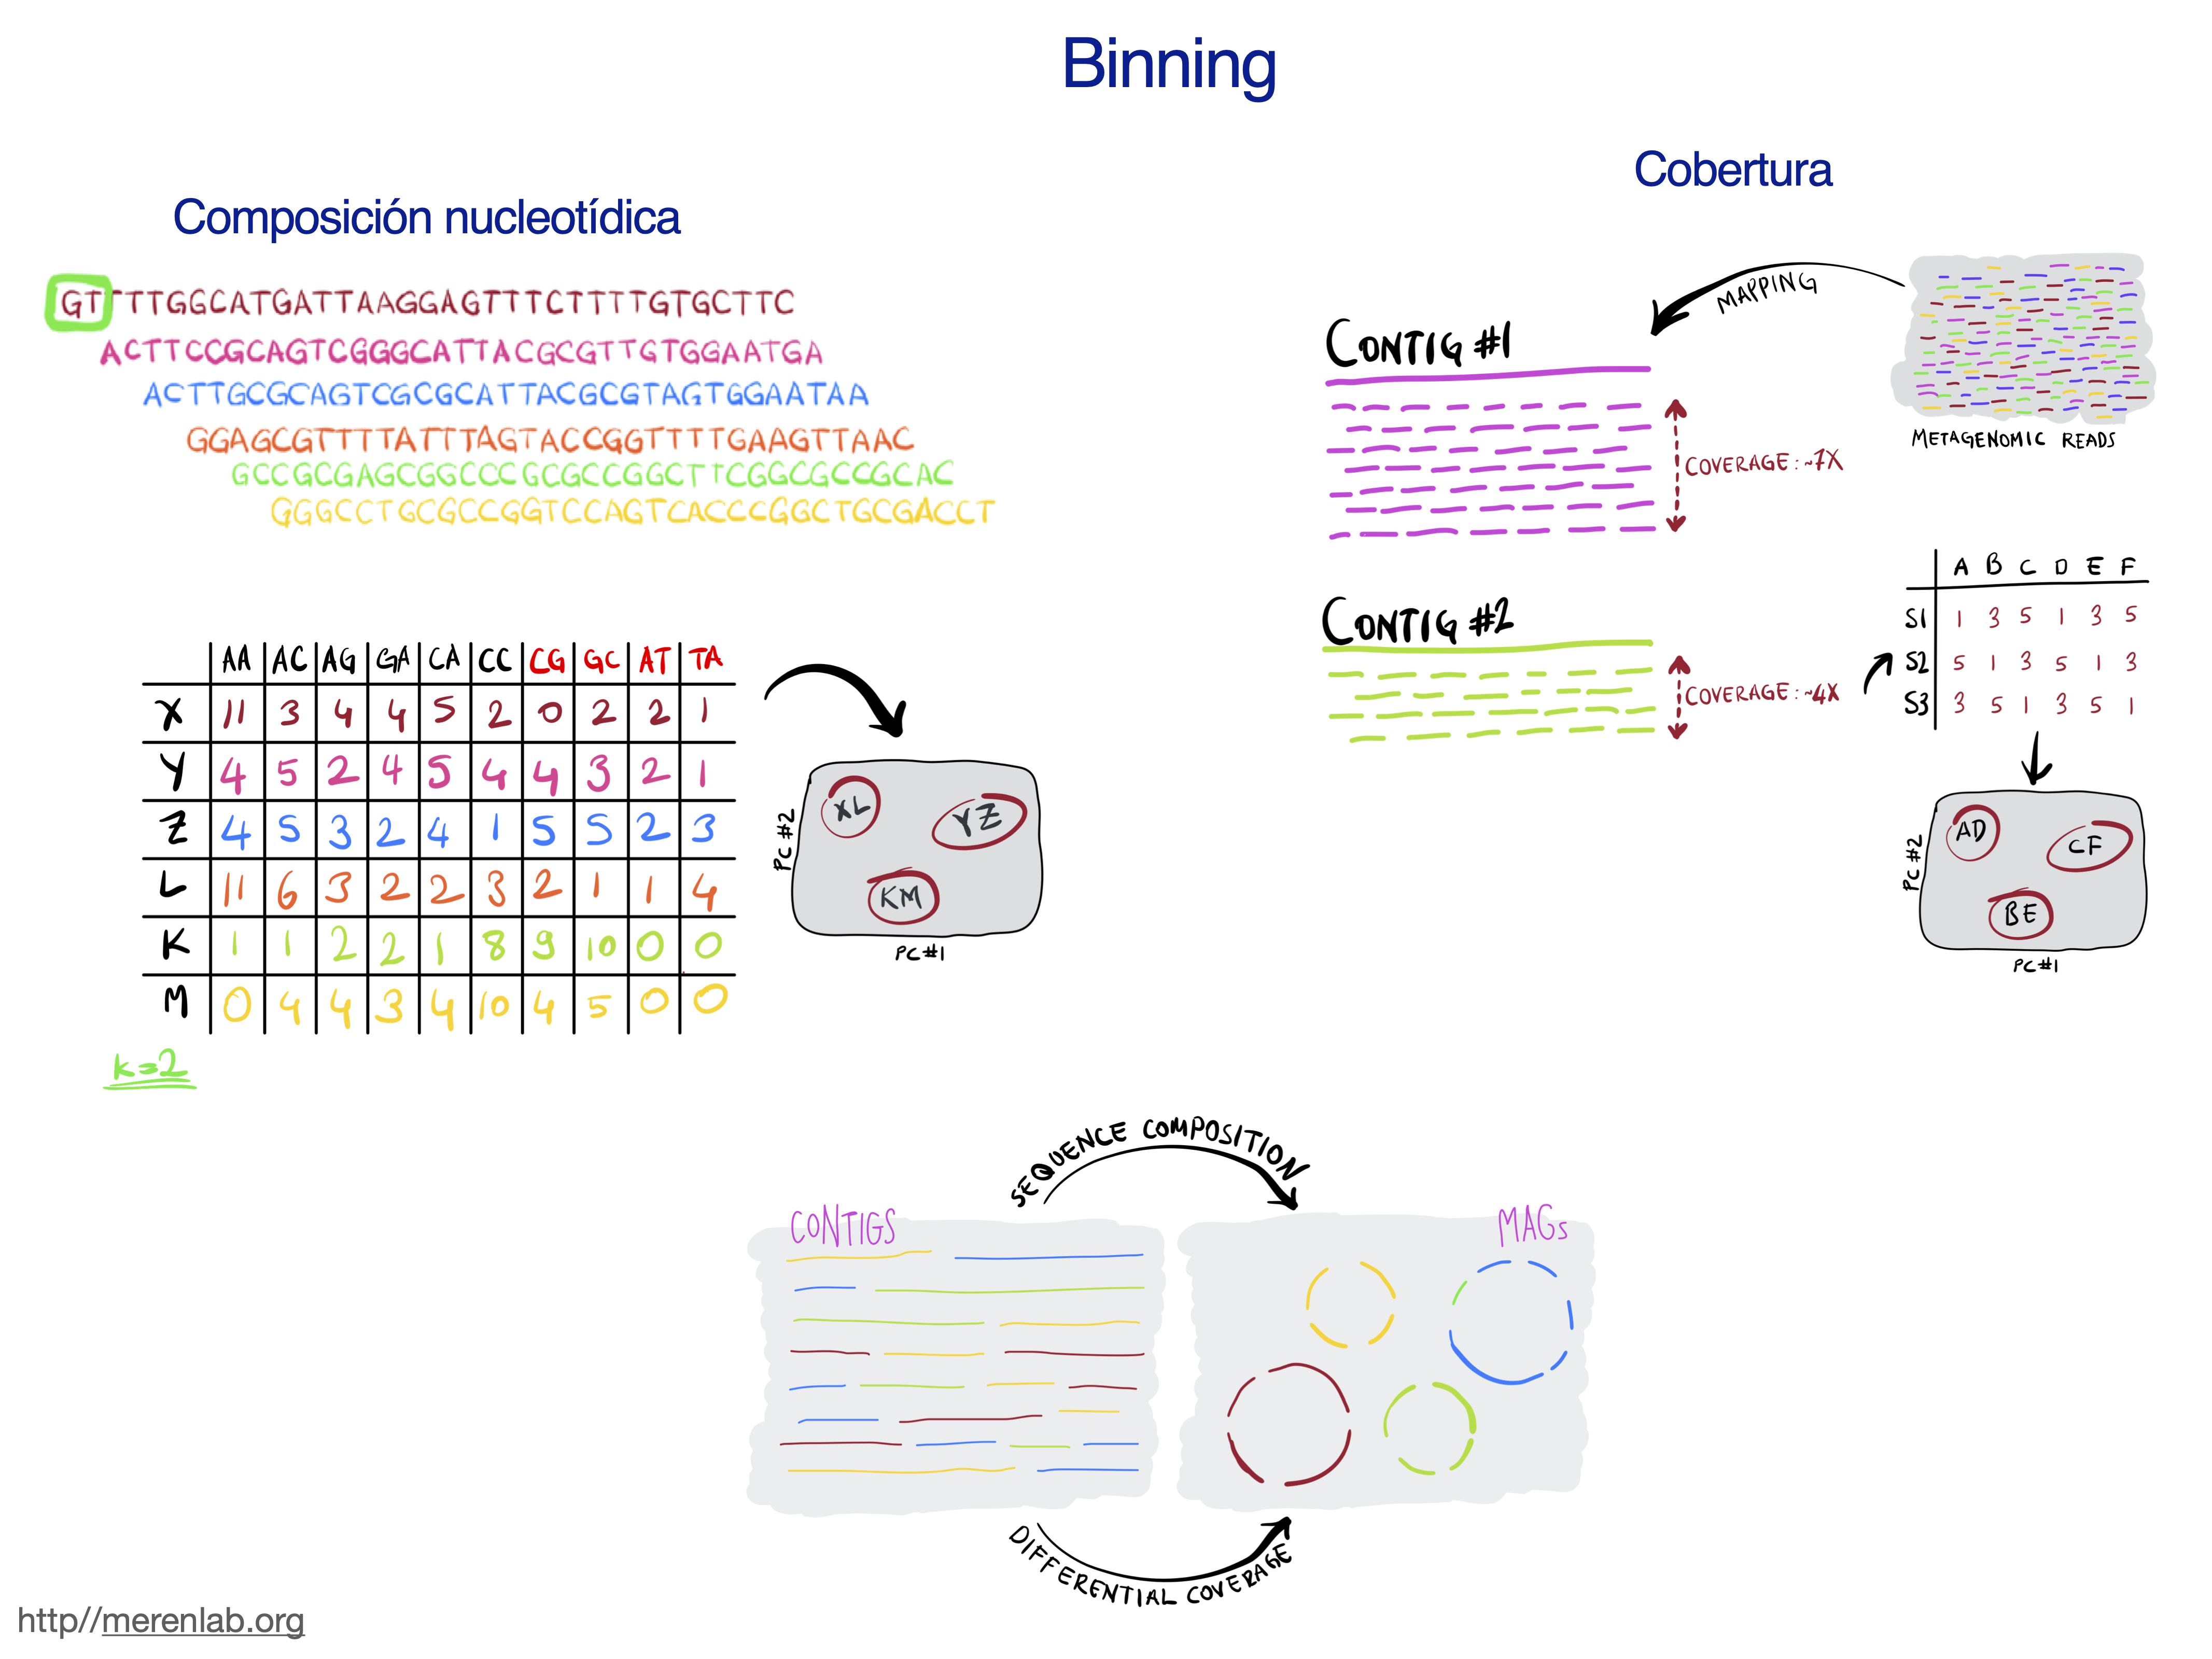 Binning
Composición nucleotídica
GTTTTGGCATGATTAAGGAGTTTCTTTTGTGCTTC
ACTTCCGCAGTCGGGCATTACGCGTTGTGGAATGA
ACTTGCGCAGTCGCGCATTACGCGTAGTGGAATAA
GGAGCGTTTTATTTAGTACCGGTTTTGAAGTTAAC
GCCGCGAGCGGCCCGCGCCGGCTTCGGCGCCGCAC
GGGCCTGCGCCGGTCCAGTCACCCGGCTGCGACCT
AA AC AG GA CA CC CG GC AT TA
X 11 3 4 4 5 2 0 2 2 1
Y 4 5 2 4 5 4 4 3 2 1
Z 4 5 3 2 4 1 5 5 2 3
L 11 6 3 2 2 3 2 1 1 4
K 1 1 2 2 1 8 9 10 0 0
M 0 4 4 3 4 10 4 5 0 0
k=2
XL
YZ
KM
PC #2
PC #1
Cobertura
MAPPING
METAGENOMIC READS
CONTIG #1
COVERAGE: ~7X
CONTIG #2
COVERAGE: ~4X
A B C D E F
S1 1 3 5 1 3 5
S2 5 1 3 5 1 3
S3 3 5 1 3 5 1
AD
CF
BE
PC #2
PC #1
SEQUENCE COMPOSITION
CONTIGS
MAGs
DIFFERENTIAL COVERAGE
http//merenlab.org